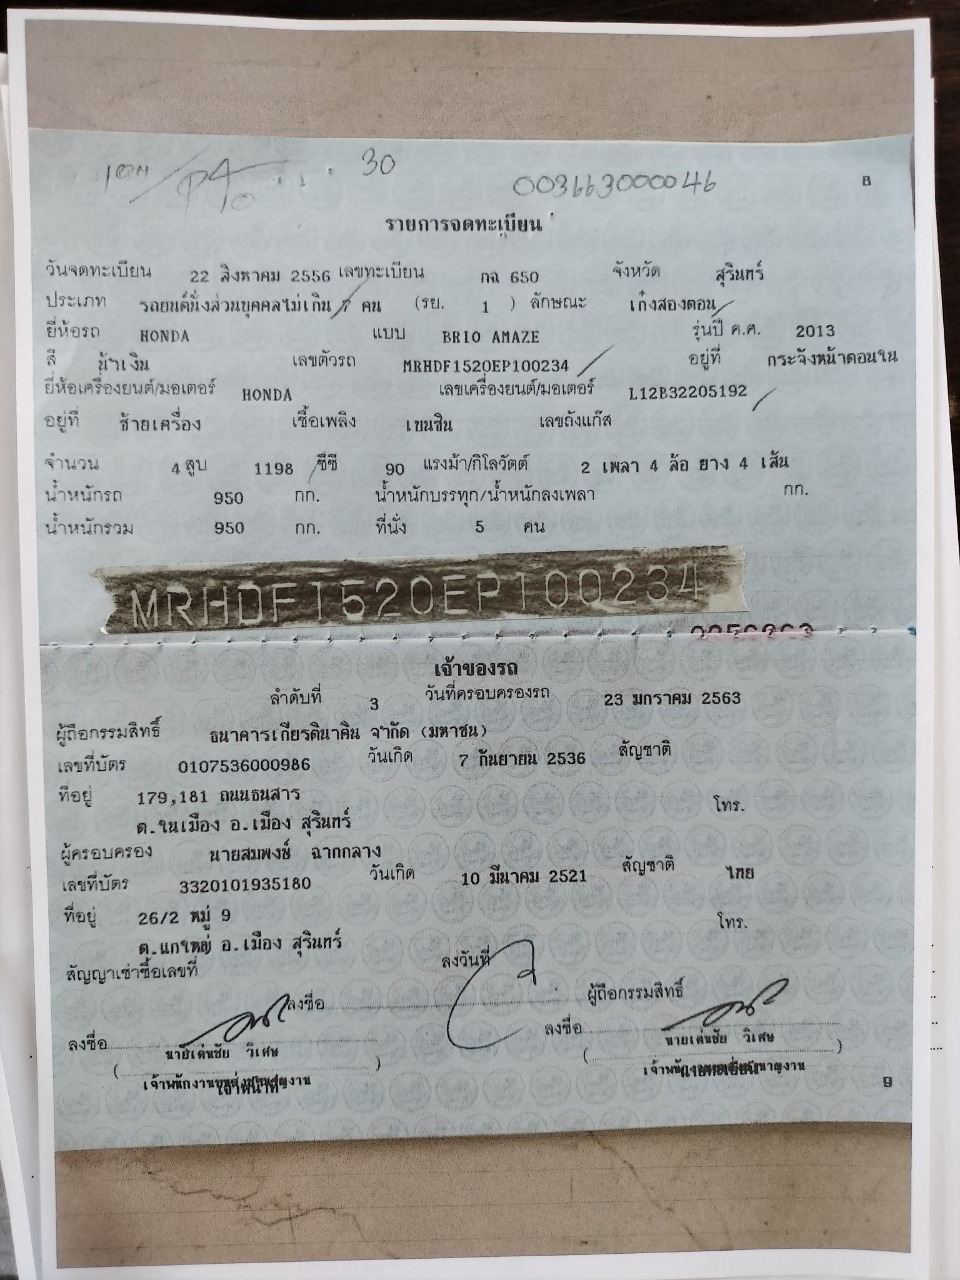 30
003663000046
8
รายการจดทะเบียน
วันจดทะเบียน 22 สิงหาคม 2556 เลขทะเบียน กฉ 650 จังหวัด สุรินทร์
ประเภท รถยนต์นั่งส่วนบุคคลไม่เกิน 7 คน (รย. 1 ) ลักษณะ เก๋งสองตอน
ยี่ห้อรถ HONDA แบบ BRIO AMAZE รุ่นปี ค.ศ. 2013
สี น้ำเงิน เลขตัวรถ MRHDF1520EP100234 อยู่ที่ กระจังหน้าตอนใน
ยี่ห้อเครื่องยนต์/มอเตอร์ HONDA เลขเครื่องยนต์/มอเตอร์ L12B32205192
อยู่ที่ ซ้ายเครื่อง เชื้อเพลิง เบนซิน เลขถังแก๊ส
จำนวน 4 สูบ 1198 ซีซี 90 แรงม้า/กิโลวัตต์ 2 เพลา 4 ล้อ ยาง 4 เส้น
น้ำหนักรถ 950 กก. น้ำหนักบรรทุก/น้ำหนักลงเพลา กก.
น้ำหนักรวม 950 กก. ที่นั่ง 5 คน
MRHDF1520EP100234
เจ้าของรถ
ลำดับที่ 3 วันที่ครอบครองรถ 23 มกราคม 2563
ผู้ถือกรรมสิทธิ์ ธนาคารเกียรตินาคิน จำกัด (มหาชน)
เลขที่บัตร 0107536000986 วันเกิด 7 กันยายน 2536 สัญชาติ
ที่อยู่ 179,181 ถนนธนสาร โทร.
ต.ในเมือง อ.เมือง สุรินทร์
ผู้ครอบครอง นายสมพงษ์ ฉากกลาง
เลขที่บัตร 3320101935180 วันเกิด 10 มีนาคม 2521 สัญชาติ ไทย
ที่อยู่ 26/2 หมู่ 9 โทร.
ต.แกใหญ่ อ.เมือง สุรินทร์
สัญญาเช่าซื้อเลขที่ ลงวันที่
ลงชื่อ ผู้ถือกรรมสิทธิ์
ลงชื่อ ลงชื่อ
นายเด่นชัย วิเศษ นายเด่นชัย วิเศษ
9